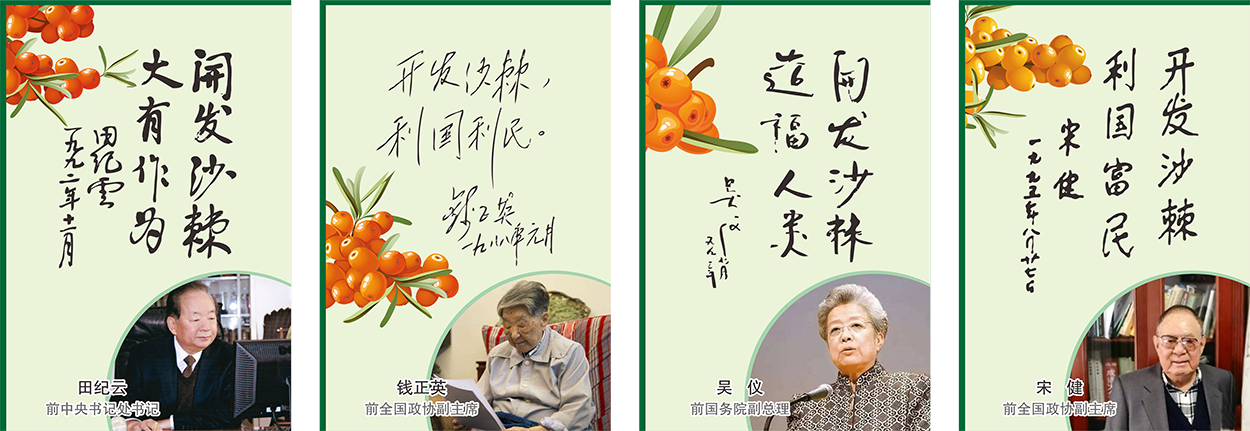 開发沙棘
大有作为
田纪雲
一九九二年十二月
田纪云
前中央书记处书记
开发沙棘，
利国利民。
钱正英
一九八八年元月
钱正英
前全国政协副主席
开发沙棘
造福人类
吴仪
吴 仪
前国务院副总理
开发沙棘
利国富民
宋健
一九九五年八月廿七日
宋 健
前全国政协副主席